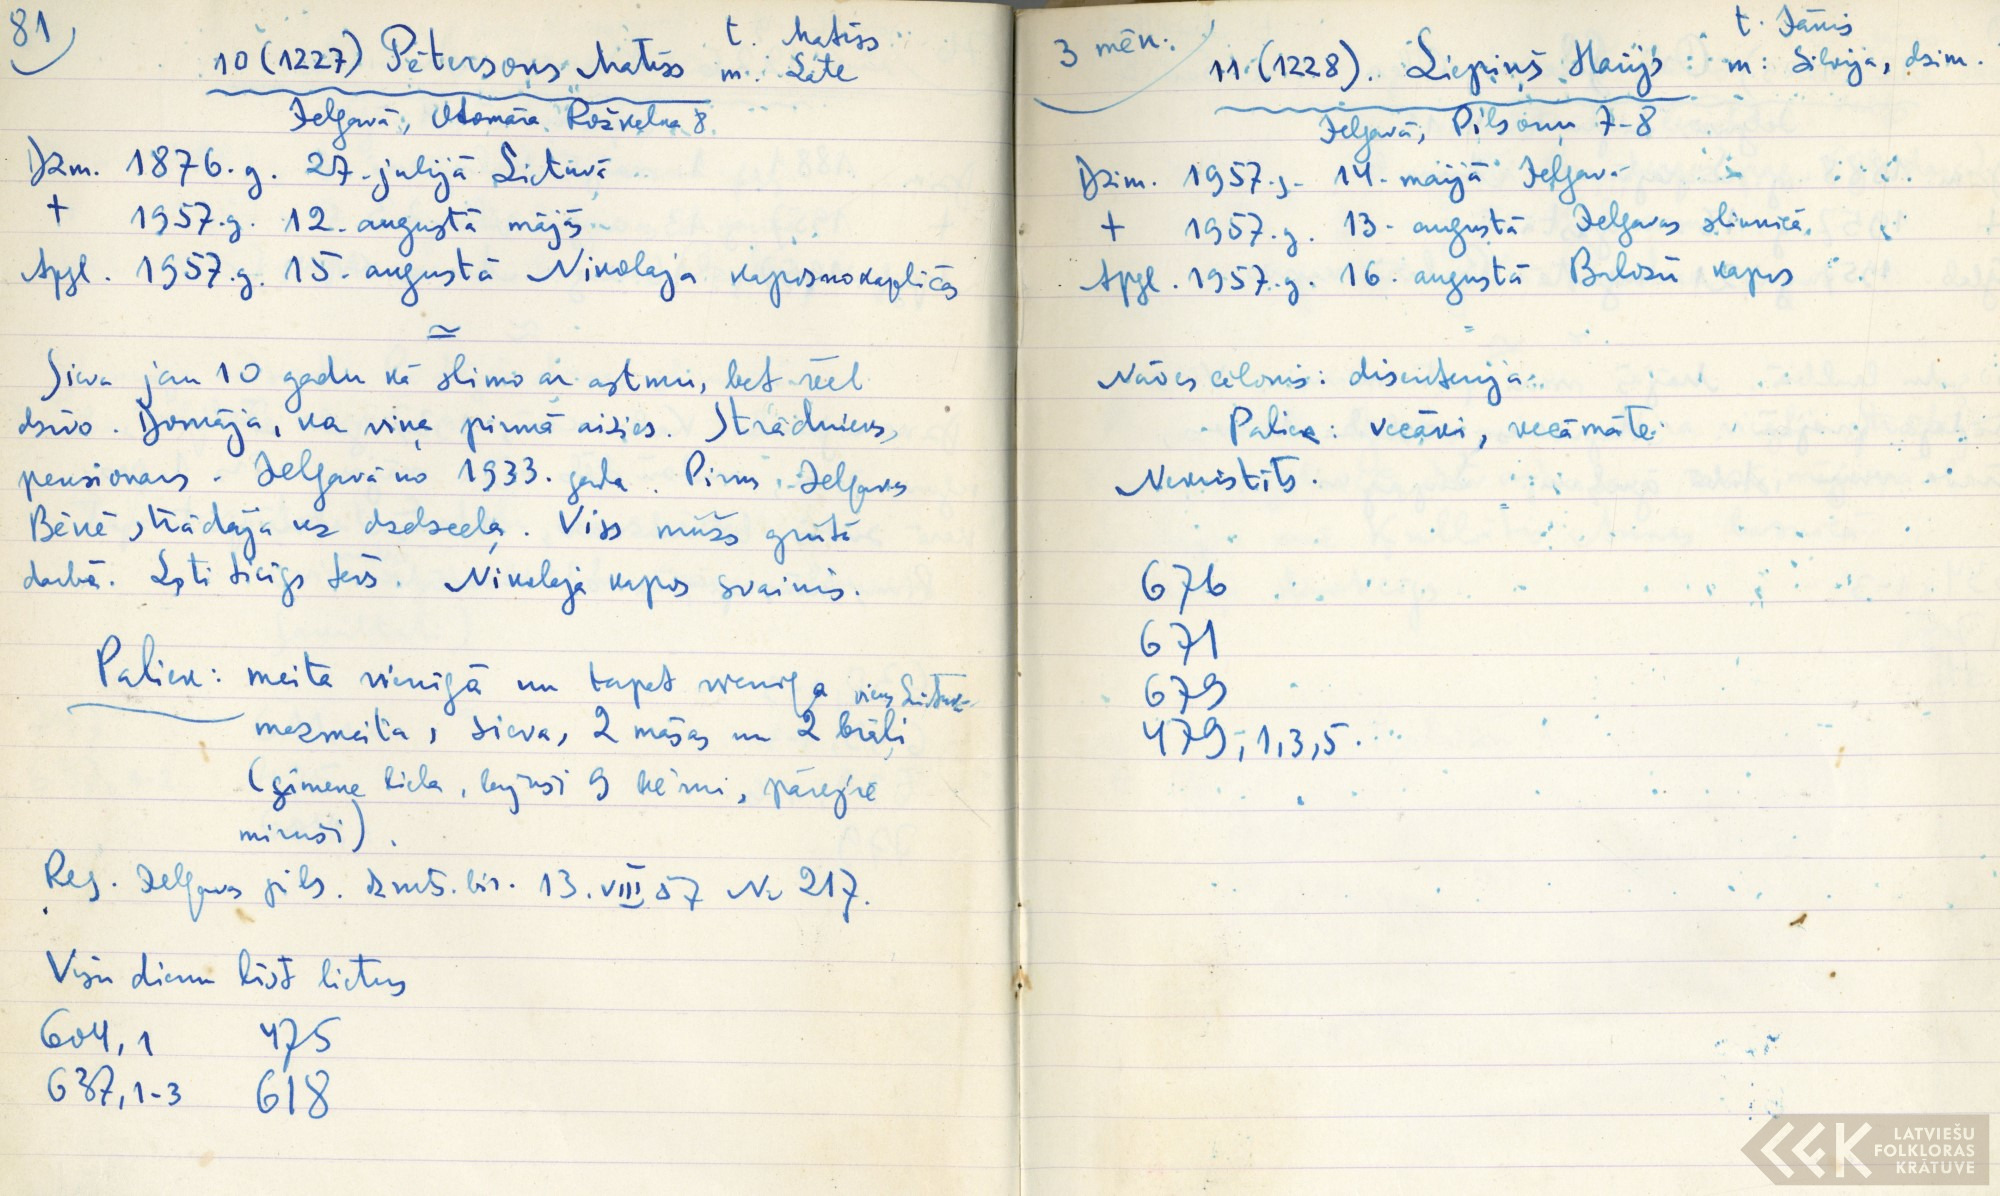 81
10 (1227) Pētersons Matīss
t. Matīss
m. Late
Jelgavā, Otomāra Rožkalna 8.
Dzm. 1876. g. 27. jūlijā Lietuvā
+ 1957. g. 12. augustā mājās
Apgl. 1957. g. 15. augustā Nikolaja kapos no kapličas
Sieva jau 10 gadu kā slimo ar astmu, bet vēl
dzīvo. Domāja, ka viņa pirmā aizies. Strādnieks,
pensionārs. Jelgavā no 1933. gada. Pirms Jelgavas
Bēnē strādāja uz dzelzceļa. Viss mūžs grūtā
darbā. Ļoti ticīgs tēvs. Nikolaja kapos svainis.
Paliek: meita vienīgā un tapat vienīga
viens Lietuvā
mazmeita, sieva, 2 māsas un 2 brāļi
(ģimene liela, bijuši 9 bērni, pārējie
miruši).
Reg. Jelgavas pils. dzmts. bir. 13. VIII 57 No 217.
Visu dienu līst lietus
604, 1 475
637, 1-3 618
3 mēn.
11. (1228). Liepiņš Harijs
t. Jānis
m: Silvija, dzim.
Jelgavā, Pilsoņu 7-8
Dzim. 1957. g. 14. maijā Jelgavā
+ 1957. g. 13. augustā Jelgavas slimnīcā.
Apgl. 1957. g. 16. augustā Baložu kapos
Nāves cēlonis: disenterija.
Paliek: vecāki, vecāmāte.
Nekristīts.
676
671
679
479, 1, 3, 5.
LATVIEŠU
FOLKLORAS
KRĀTUVE